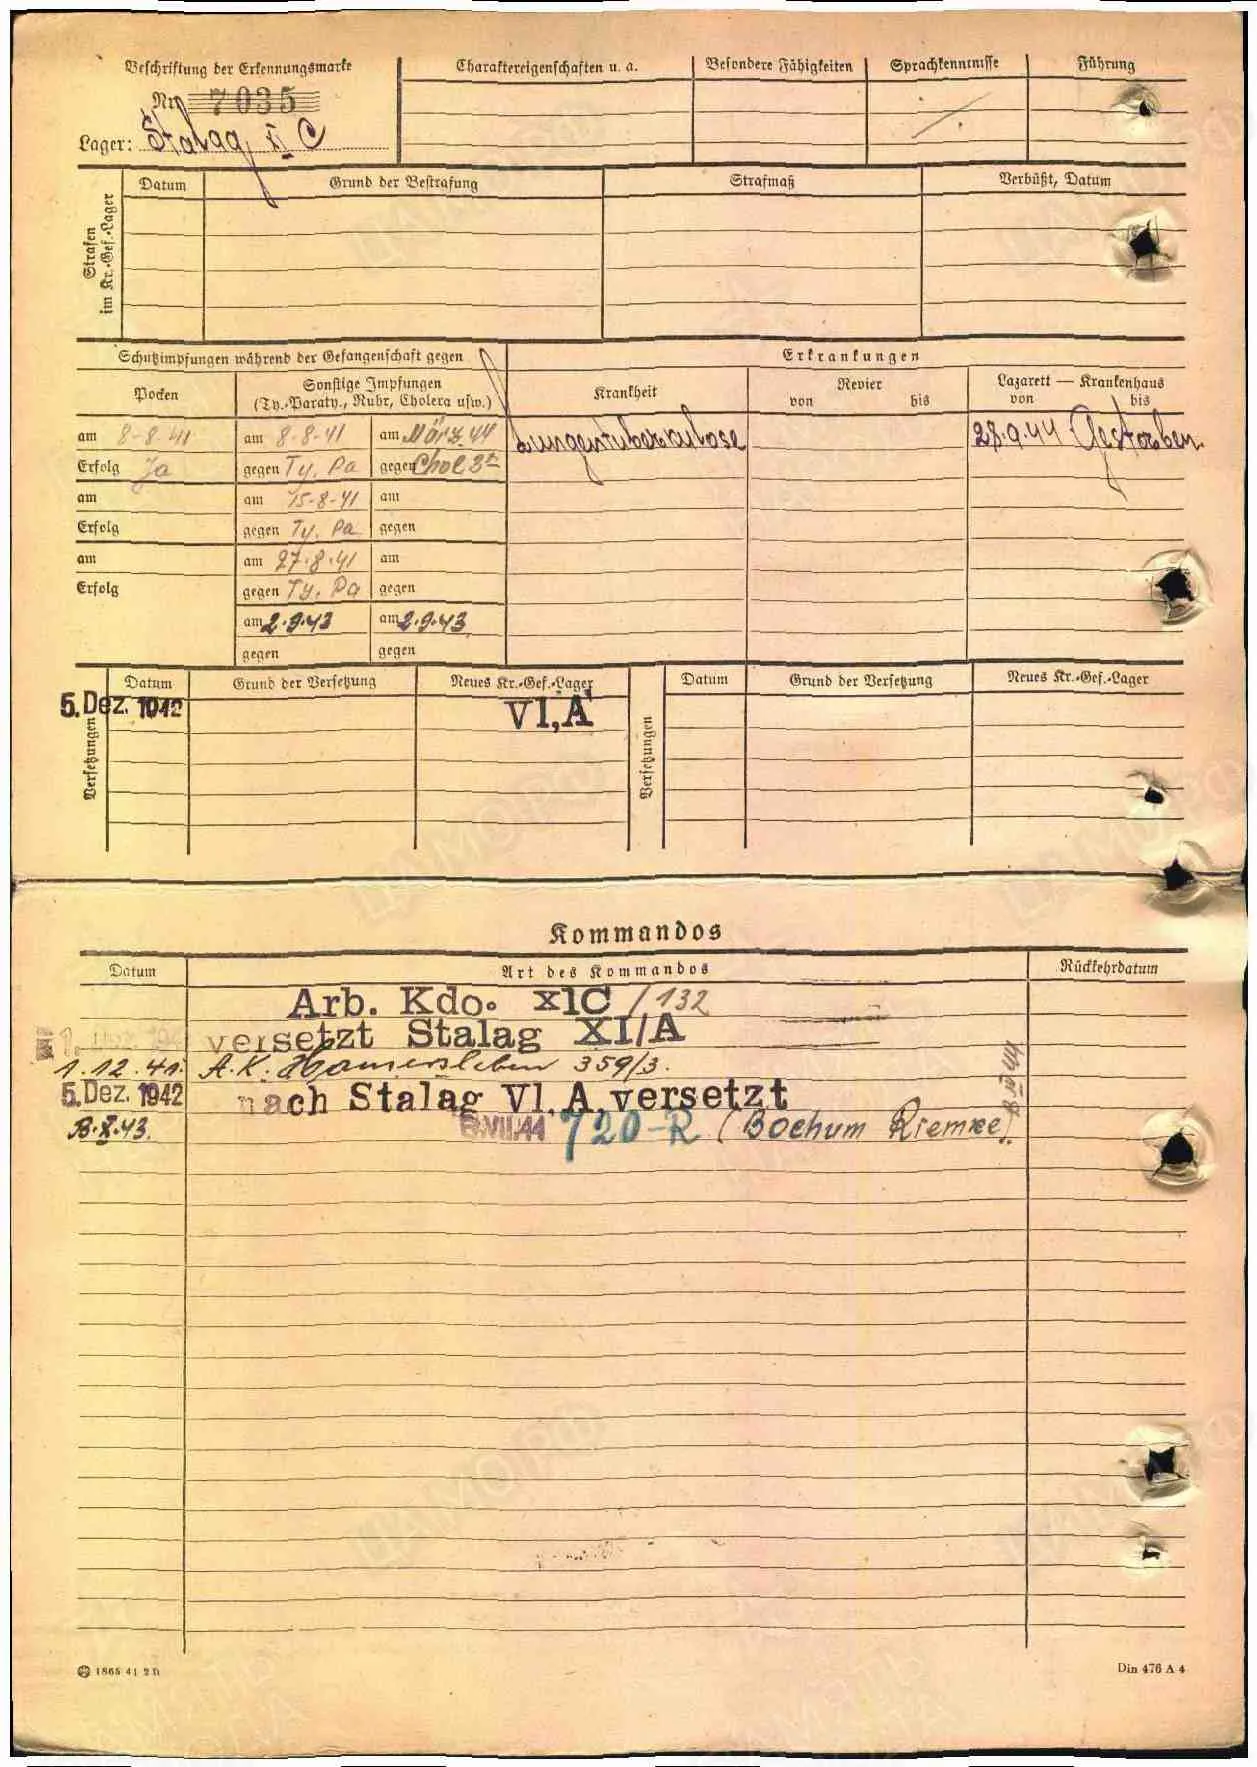 Beschriftung der Erkennungsmarke
Nr. 7035
Lager: Stalag XI C
Charaktereigenschaften u. a.
Besondere Fähigkeiten
Sprachkenntnisse
Führung
Strafen im Kr.-Gef.-Lager
Datum
Grund der Bestrafung
Strafmaß
Verbüßt, Datum
Schutzimpfungen während der Gefangenschaft gegen
Erkrankungen
Pocken
Sonstige Impfungen
(Ty.-Paraty., Ruhr, Cholera usw.)
Krankheit
Revier
von bis
Lazarett — Krankenhaus
von bis
am 8-8-41 am 8-8-41 am März 44 Lungentuberkulose 28.9.44 Gestorben
Erfolg Ja gegen Ty. Pa gegen Chol
am am 15-8-41 am
Erfolg gegen Ty. Pa gegen
am am 27.8.41 am
Erfolg gegen Ty. Pa gegen
am 2.9.43 am 2.9.43
gegen gegen
Versetzungen
Datum Grund der Versetzung Neues Kr.-Gef.-Lager
5. Dez. 1942 VI, A
Versetzungen
Datum Grund der Versetzung Neues Kr.-Gef.-Lager
Kommandos
Datum Art des Kommandos Rückkehrdatum
Arb. Kdo. XIC /132
versetzt Stalag XI/A
1.12.41. A.K. Hamersleben 359/3.
5. Dez. 1942 nach Stalag VI, A, versetzt
VII.44 720-R (Bochum Riemke)
1865 41 2 D
Din 476 A 4
ЦАМО РФ